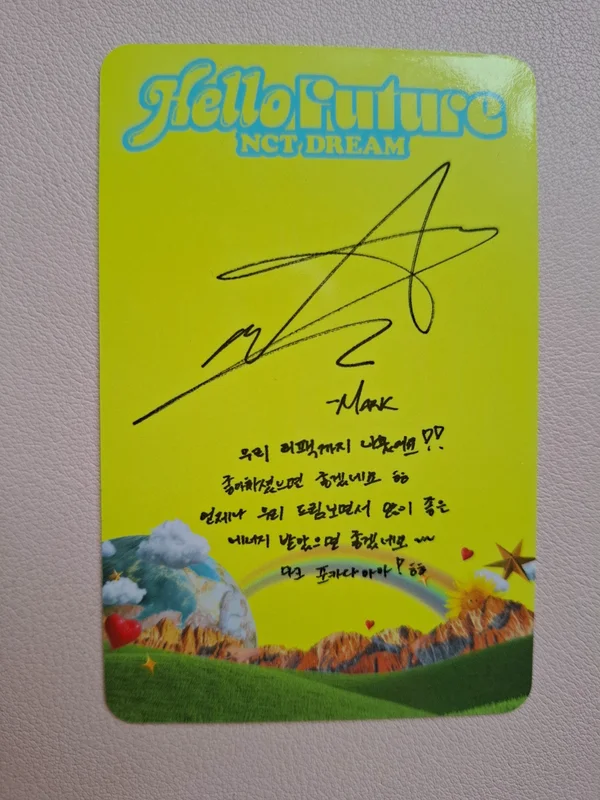 Hello Future
NCT DREAM
-MARK
우리 리팩까지 나왔어요!!
좋아하셨으면 좋겠네요 ㅎㅎ
언제나 우리 드림보면서 많이 좋은
에너지 받았으면 좋겠네요 ~~
마크 포카다 아아! ㅎㅎ